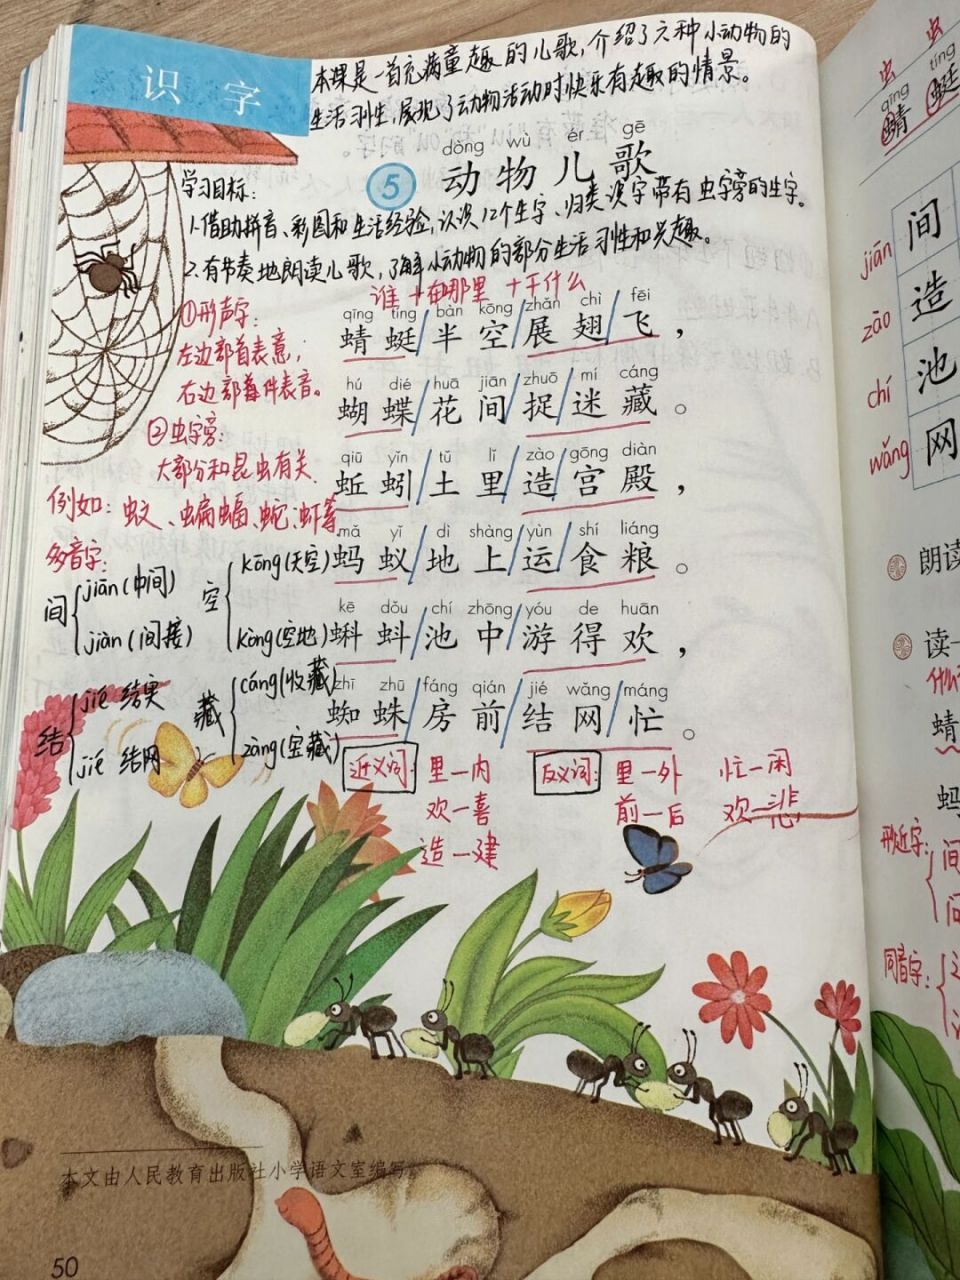 识字
本课是一首充满童趣的儿歌,介绍了六种小动物的
生活习性,展现了动物活动时快乐有趣的情景。
dòng wù ér gē
5 动物儿歌
学习目标:
1.借助拼音、彩图和生活经验,认识12个生字、归类识字带有虫字旁的生字。
2.有节奏地朗读儿歌,了解小动物的部分生活习性和兴趣。
谁+在哪里+干什么
①形声字:
左边部首表意,
右边部件表音。
②虫字旁:
大部分和昆虫有关.
例如:蚊、蝙蝠、蛇、虾等
qīng tíng bàn kōng zhǎn chì fēi
蜻蜓/半空/展翅/飞,
hú dié huā jiān zhuō mí cáng
蝴蝶/花间/捉/迷藏。
qiū yǐn tǔ lǐ zào gōng diàn
蚯蚓/土里/造/宫殿,
mǎ yǐ dì shàng yùn shí liáng
蚂蚁/地上/运/食粮。
kē dǒu chí zhōng yóu de huān
蝌蚪/池中/游得欢,
zhī zhū fáng qián jié wǎng máng
蜘蛛/房前/结网/忙。
多音字:
间 jiān(中间)
jiàn(间接)
空 kōng(天空)
kòng(空地)
结 jiē 结实
jié 结网
藏 cáng(收藏)
zàng(宝藏)
近义词: 里—内
欢—喜
造—建
反义词: 里—外 忙—闲
前—后 欢—悲
本文由人民教育出版社小学语文室编写
50
虫 虫
qīng tíng
蜻 蜓
jiān 间
zào 造
chí 池
wǎng 网
朗读
读一
什么
蜻
蚂
形近字: 间
问
同音字: